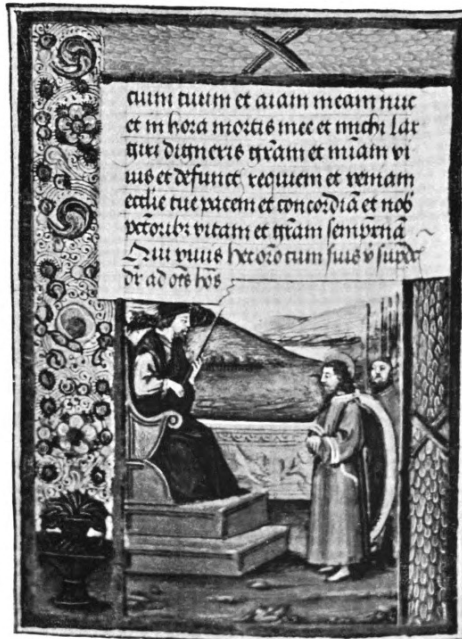 tuum et aīam meam nūc
et in hora mortis mee et michi lar
giri digneris grām et mīam vi
uis et defunct requiem et veniam
ecclie tue pacem et concordiā et nob
pctoribꝫ vitam et grām sempernā
Qui viuis hec oro cum suis v̄
dr ad oēs hōs